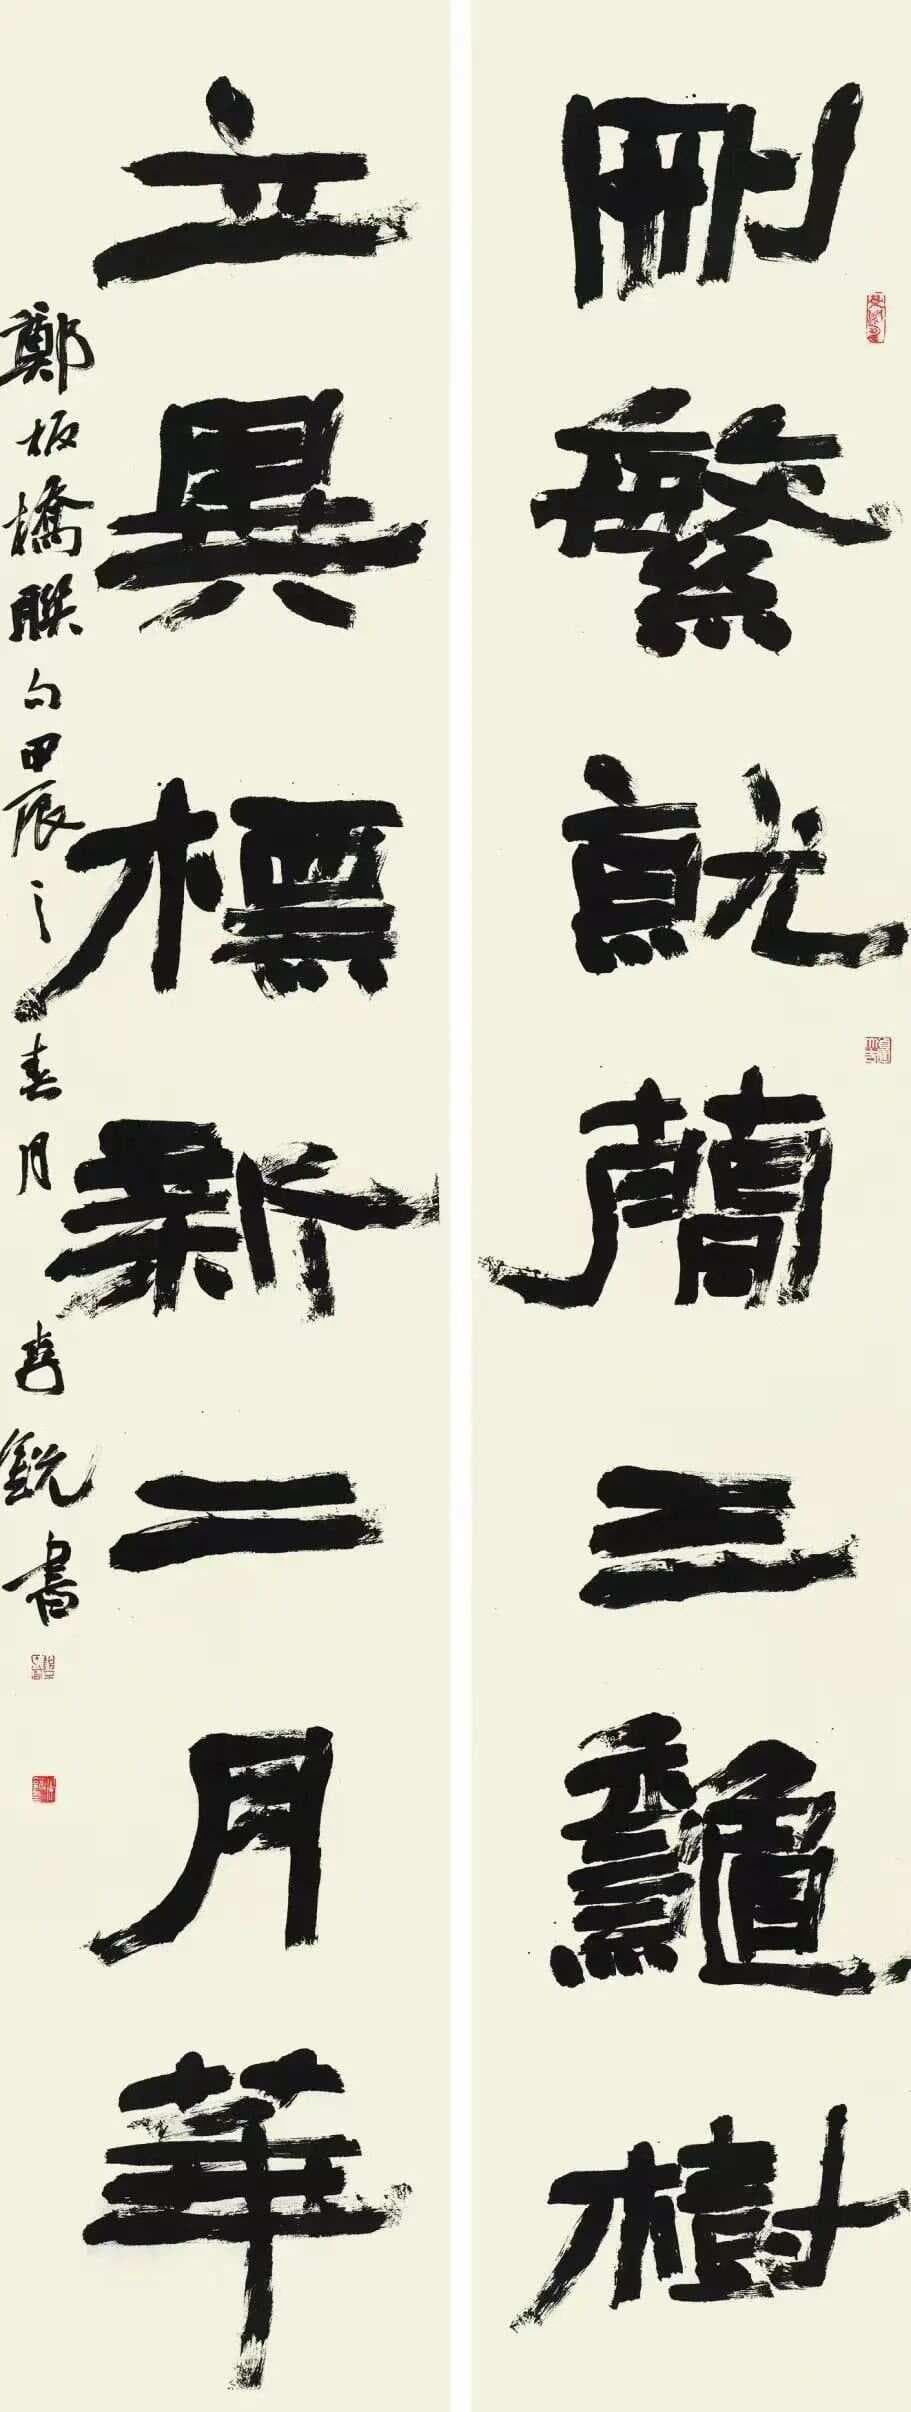 刪繁就蕳三龝樹
立異標新二月華
鄭板橋聯句甲辰之春月 銳書